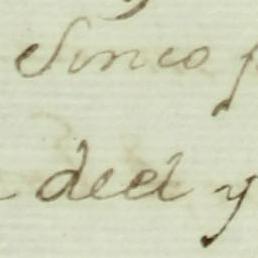 Sinco
deel y